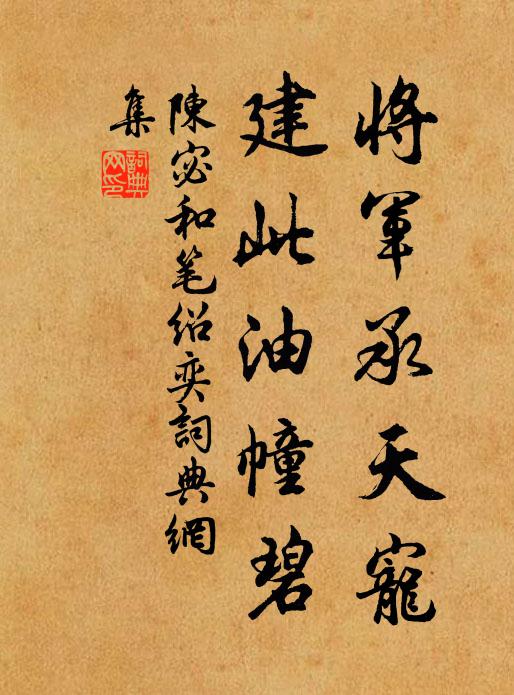 將軍承天寵
建此油幢碧
陳宓和笔绍奕詞典網
集
詞典
网印